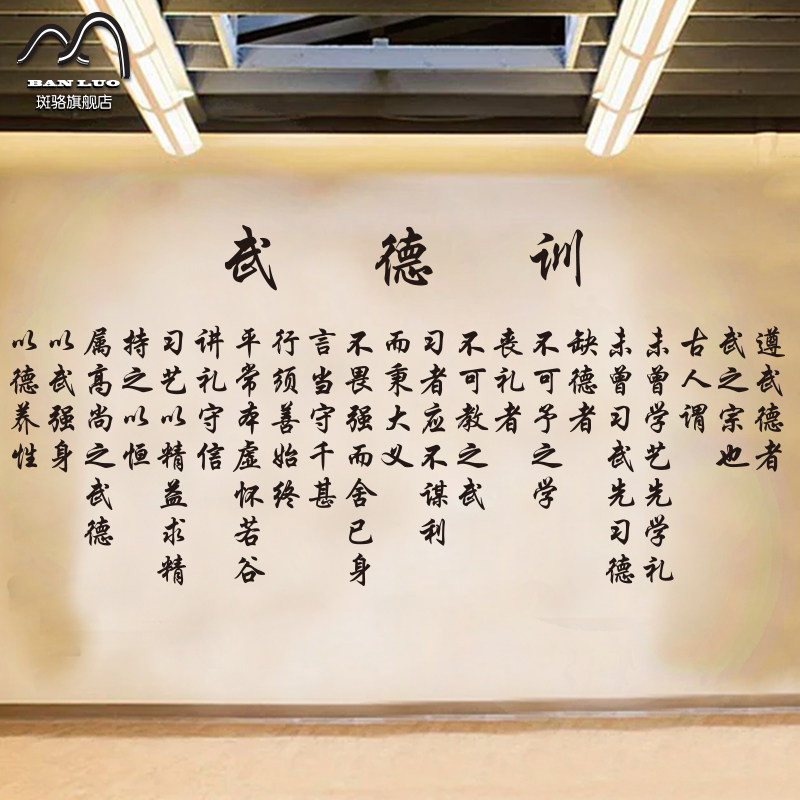 BAN LUO
斑骆旗舰店
武德训
遵武德者
武之宗也
古人谓
未曾学艺先学礼
未曾习武先习德
缺德者
不可予之学
丧礼者
不可教之武
习者应不谋利
而秉大义
不畏强而舍已身
言当守千甚
行须善始终
平常本虚怀若谷
讲礼守信
习艺以精益求精
持之以恒
属高尚之武德
以武强身
以德养性